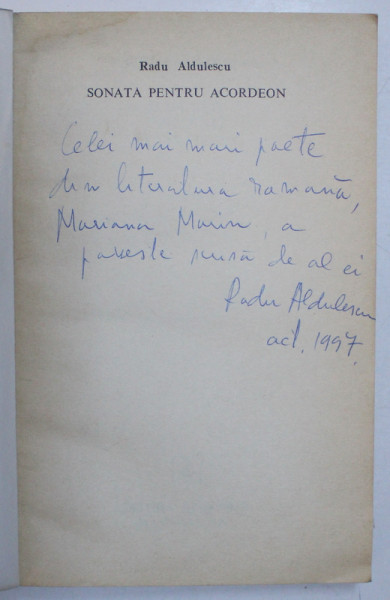 Radu Aldulescu
SONATA PENTRU ACORDEON
Celei mai mari poete
din literatura română,
Mariana Marin, a
poveste scrisă de al ei
Radu Aldulescu
oct. 1997.